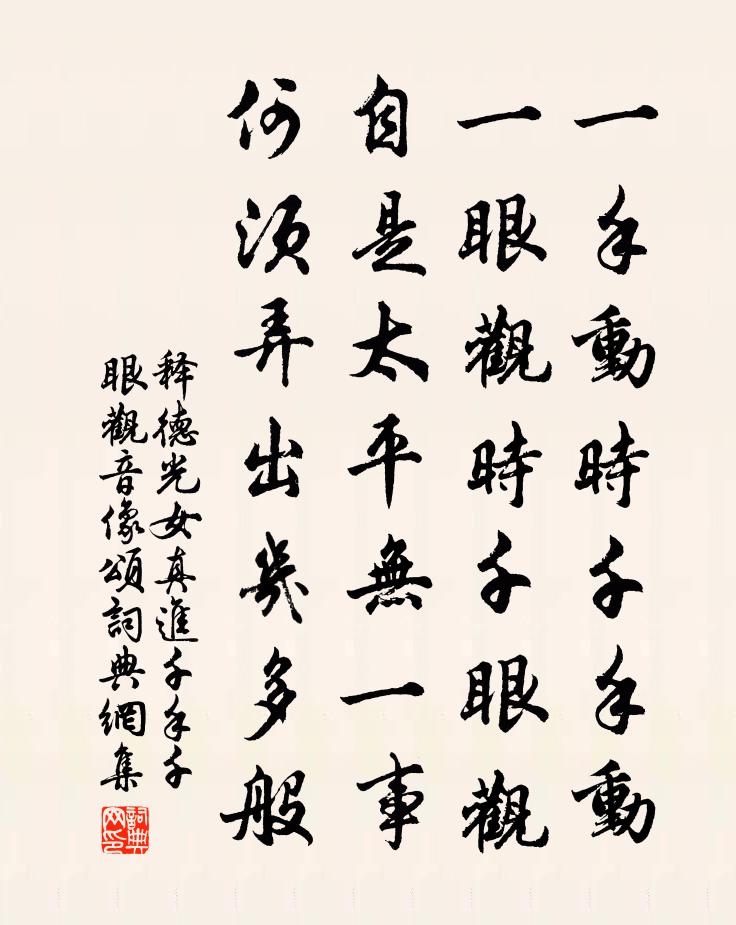 一手動時千手動
一眼觀時千眼觀
自是太平無一事
何須弄出幾多般
释德光女真進千手千
眼觀音像頌詞典網集
詞典
网印